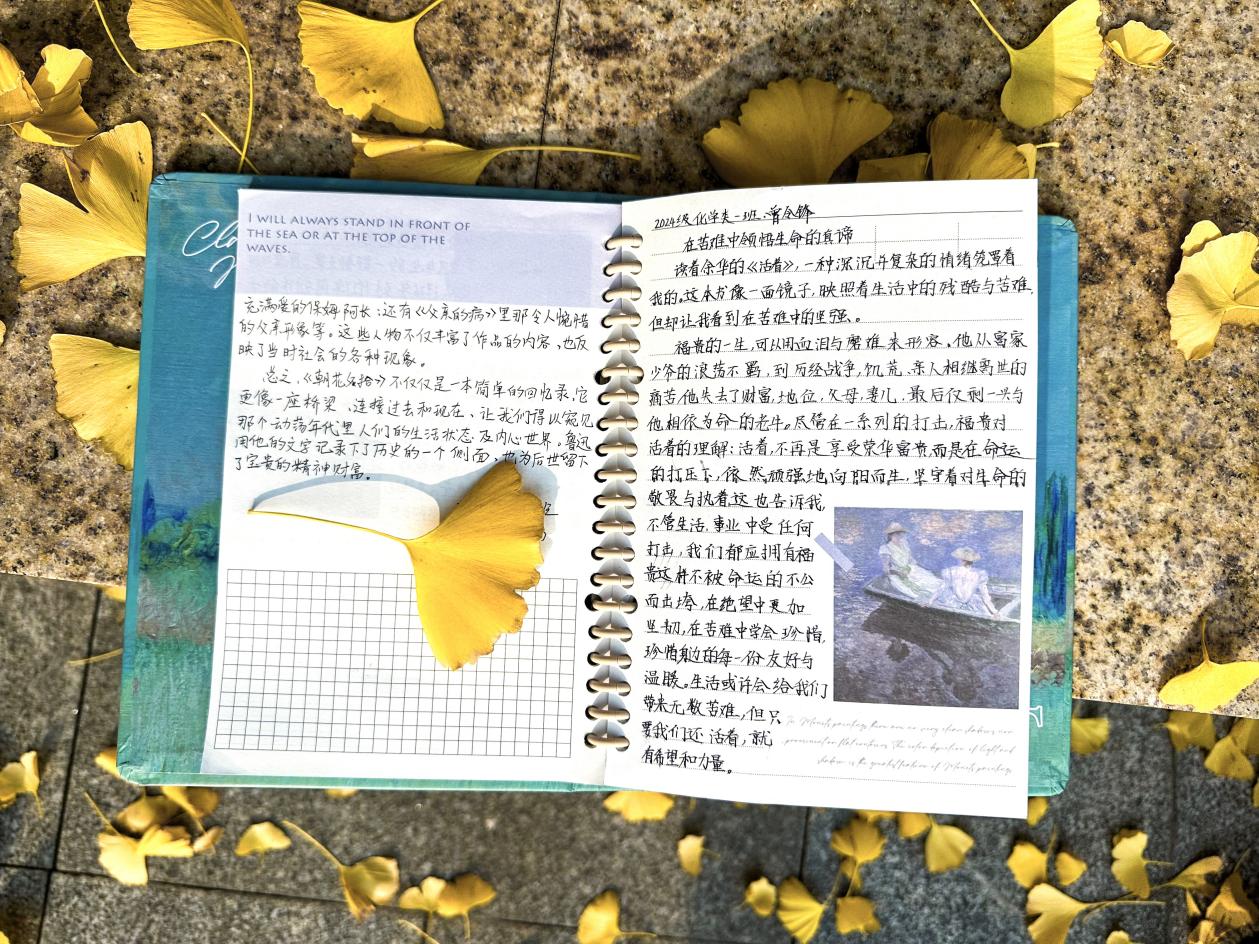 I WILL ALWAYS STAND IN FRONT OF
THE SEA OR AT THE TOP OF THE
WAVES.
充满爱的保姆阿长;还有《父亲的病》里那令人惋惜
的父亲形象等。这些人物不仅丰富了作品的内容,也反
映了当时社会的各种现象。
总之,《朝花夕拾》不仅仅是一本简单的回忆录,它
更像一座桥梁、连接过去和现在、让我们得以窥见
那个动荡年代里人们的生活状态及内心世界。鲁迅
用他的文字记录下了历史的一个侧面,也为后世留下
了宝贵的精神财富。
2024级化学类一班
在苦难中领悟生命的真谛
读着余华的《活着》,一种深沉并复杂的情绪笼罩着
我的。这本书像一面镜子,映照着生活中的残酷与苦难,
但却让我看到在苦难中的坚强。
福贵的一生,可以用血泪与磨难来形容。他从富家
少爷的浪荡不羁,到历经战争,饥荒、亲人相继离世的
痛苦,他失去了财富,地位,父母,妻儿,最后仅剩一头与
他相依为命的老牛。尽管在一系列的打击,福贵对
活着的理解:活着,不再是享受荣华富贵而是在命运
的打压下,依然顽强地向阳而生,坚守着对生命的
敬畏与执着这也告诉我,
不管生活、事业中受任何
打击,我们都应拥有福
贵这样不被命运的不公
而击垮,在绝望中更加
坚韧,在苦难中学会珍惜,
珍惜身边的每一份友好与
温暖。生活或许会给我们
带来无数苦难,但只
要我们还活着,就
有希望和力量。